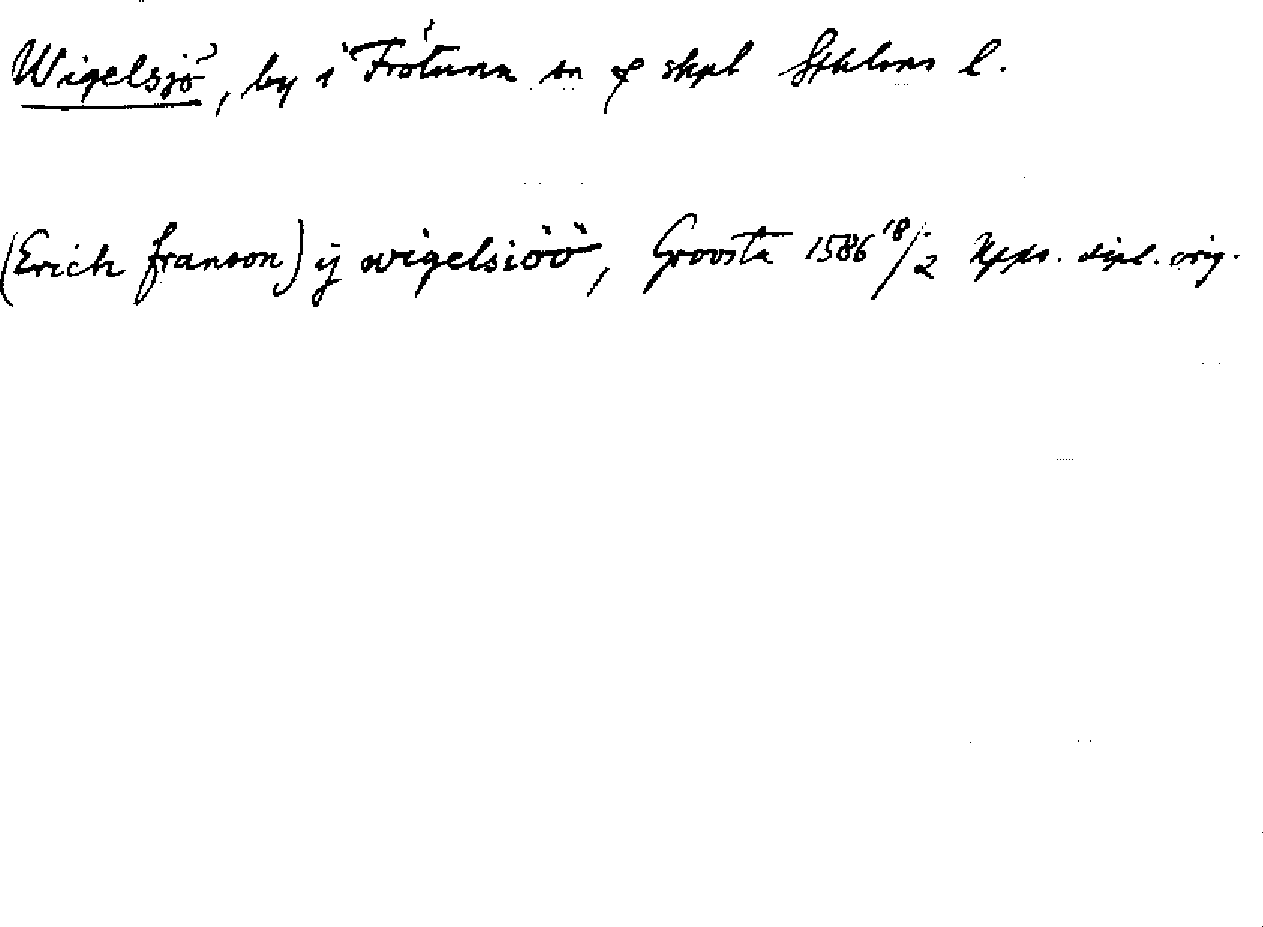 Wigelsjö, by i Frötuna sn o skpl Sthlms l.
(Erich franson) ÿ wigelsiöö, Groosta 1586 18/2 Upps. dipl. orig.